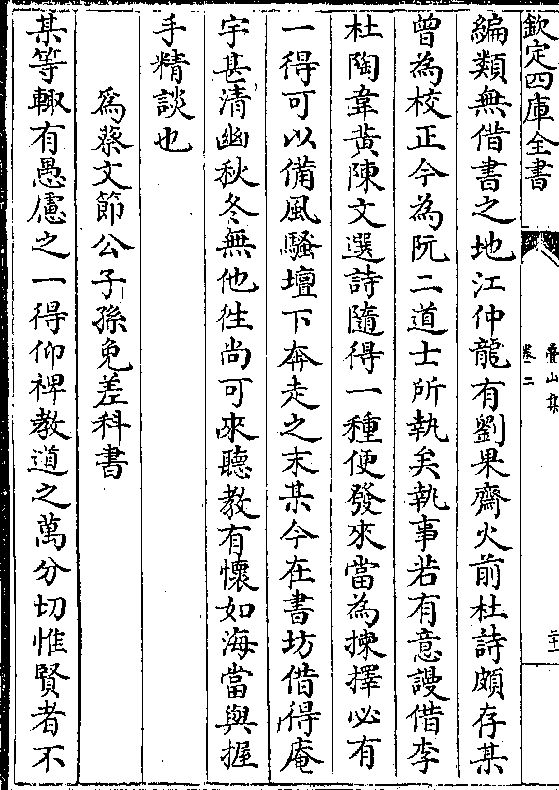 欽定四庫全書
疊山集
卷二
編類無借書之地江仲龍有劉果齋火前杜詩頗存某
曾為校正今為阮二道士所執矣執事若有意謾借李
杜陶韋黄陳文選詩隨得一種便發來當為揀擇必有
一得可以備風騷壇下奔走之末某今在書坊借得庵
宇甚清幽秋冬無他徃尚可來聽教有懷如海當與握
手精談也
爲蔡文節公子孫免差科書
某等輙有愚慮之一得仰裨教道之萬分切惟賢者不